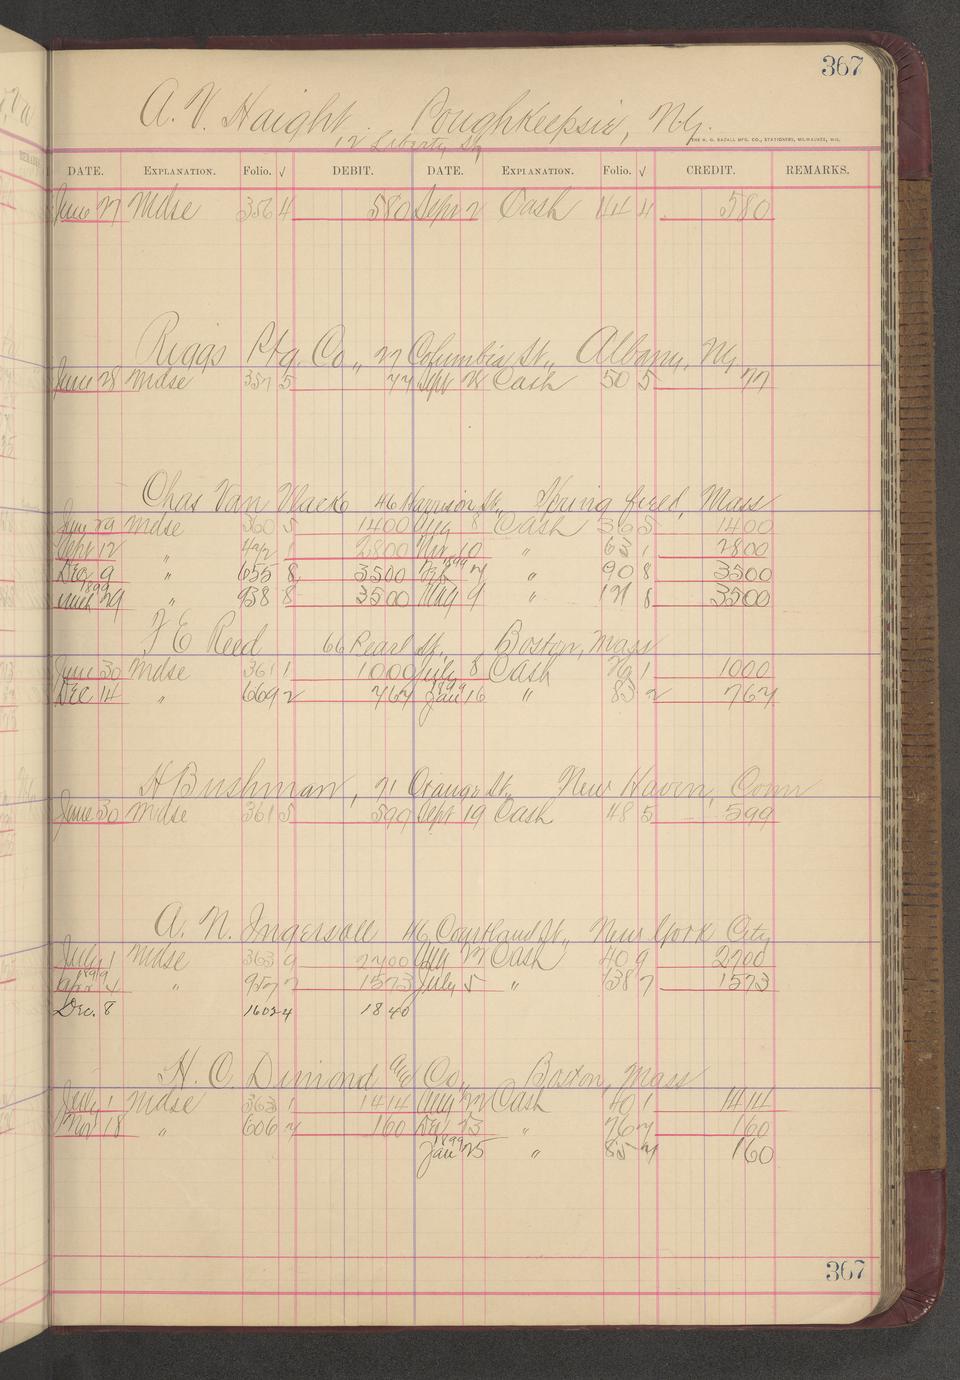 367
A. V. Haight Poughkeepsie, N.Y.
12 Liberty St,
THE H. G. RAZALL MFG. CO., STATIONERS, MILWAUKEE, WIS.
DATE. EXPLANATION. Folio. √ DEBIT. DATE. EXPLANATION. Folio. √ CREDIT. REMARKS.
June 27 Mdse 356 4 580 Sept 2 Cash 44 4 580
Riggs Ptg. Co., 27 Columbia St., Albany, Ny
June 28 Mdse 357 5 77 Sept Cash 50 5 77
Chas Van 46 Harrison St., Springfield, Mass
June 29 Mdse 360 5 1400 Aug 8 Cash 36 5 1400
Sept 12 " 422 1 2800 Nov 10 " 63 1 2800
Dec 9 " 655 8 3500 1899 Feb 7 " 90 8 3500
1899 Mch 29 " 938 8 3500 May 9 " 121 8 3500
F E Reed 66 Pearl St., Boston, Mass
June 30 Mdse 361 1 1000 July 8 Cash 26 1 1000
Dec 14 " 669 2 767 1899 Jan 16 " 83 2 767
H Bushman, 71 Orange St., New Haven, Conn
June 30 Mdse 361 5 599 Sept 19 Cash 48 5 599
A. N. Ingersoll 46 Courtland St., New York City
July 1 Mdse 363 9 2700 Aug 22 Cash 40 9 2700
1899 Apr 4 " 957 7 1573 July 5 " 138 7 1573
Dec. 8 1602 4 1840
H. C. Dimond and Co., Boston, Mass
July 1 Mdse 363 1 1414 Aug 22 Cash 40 1 1414
Nov 18 " 606 7 160 Dec 23 " 76 7 160
1899 Jan 25 " 85 7 160
367